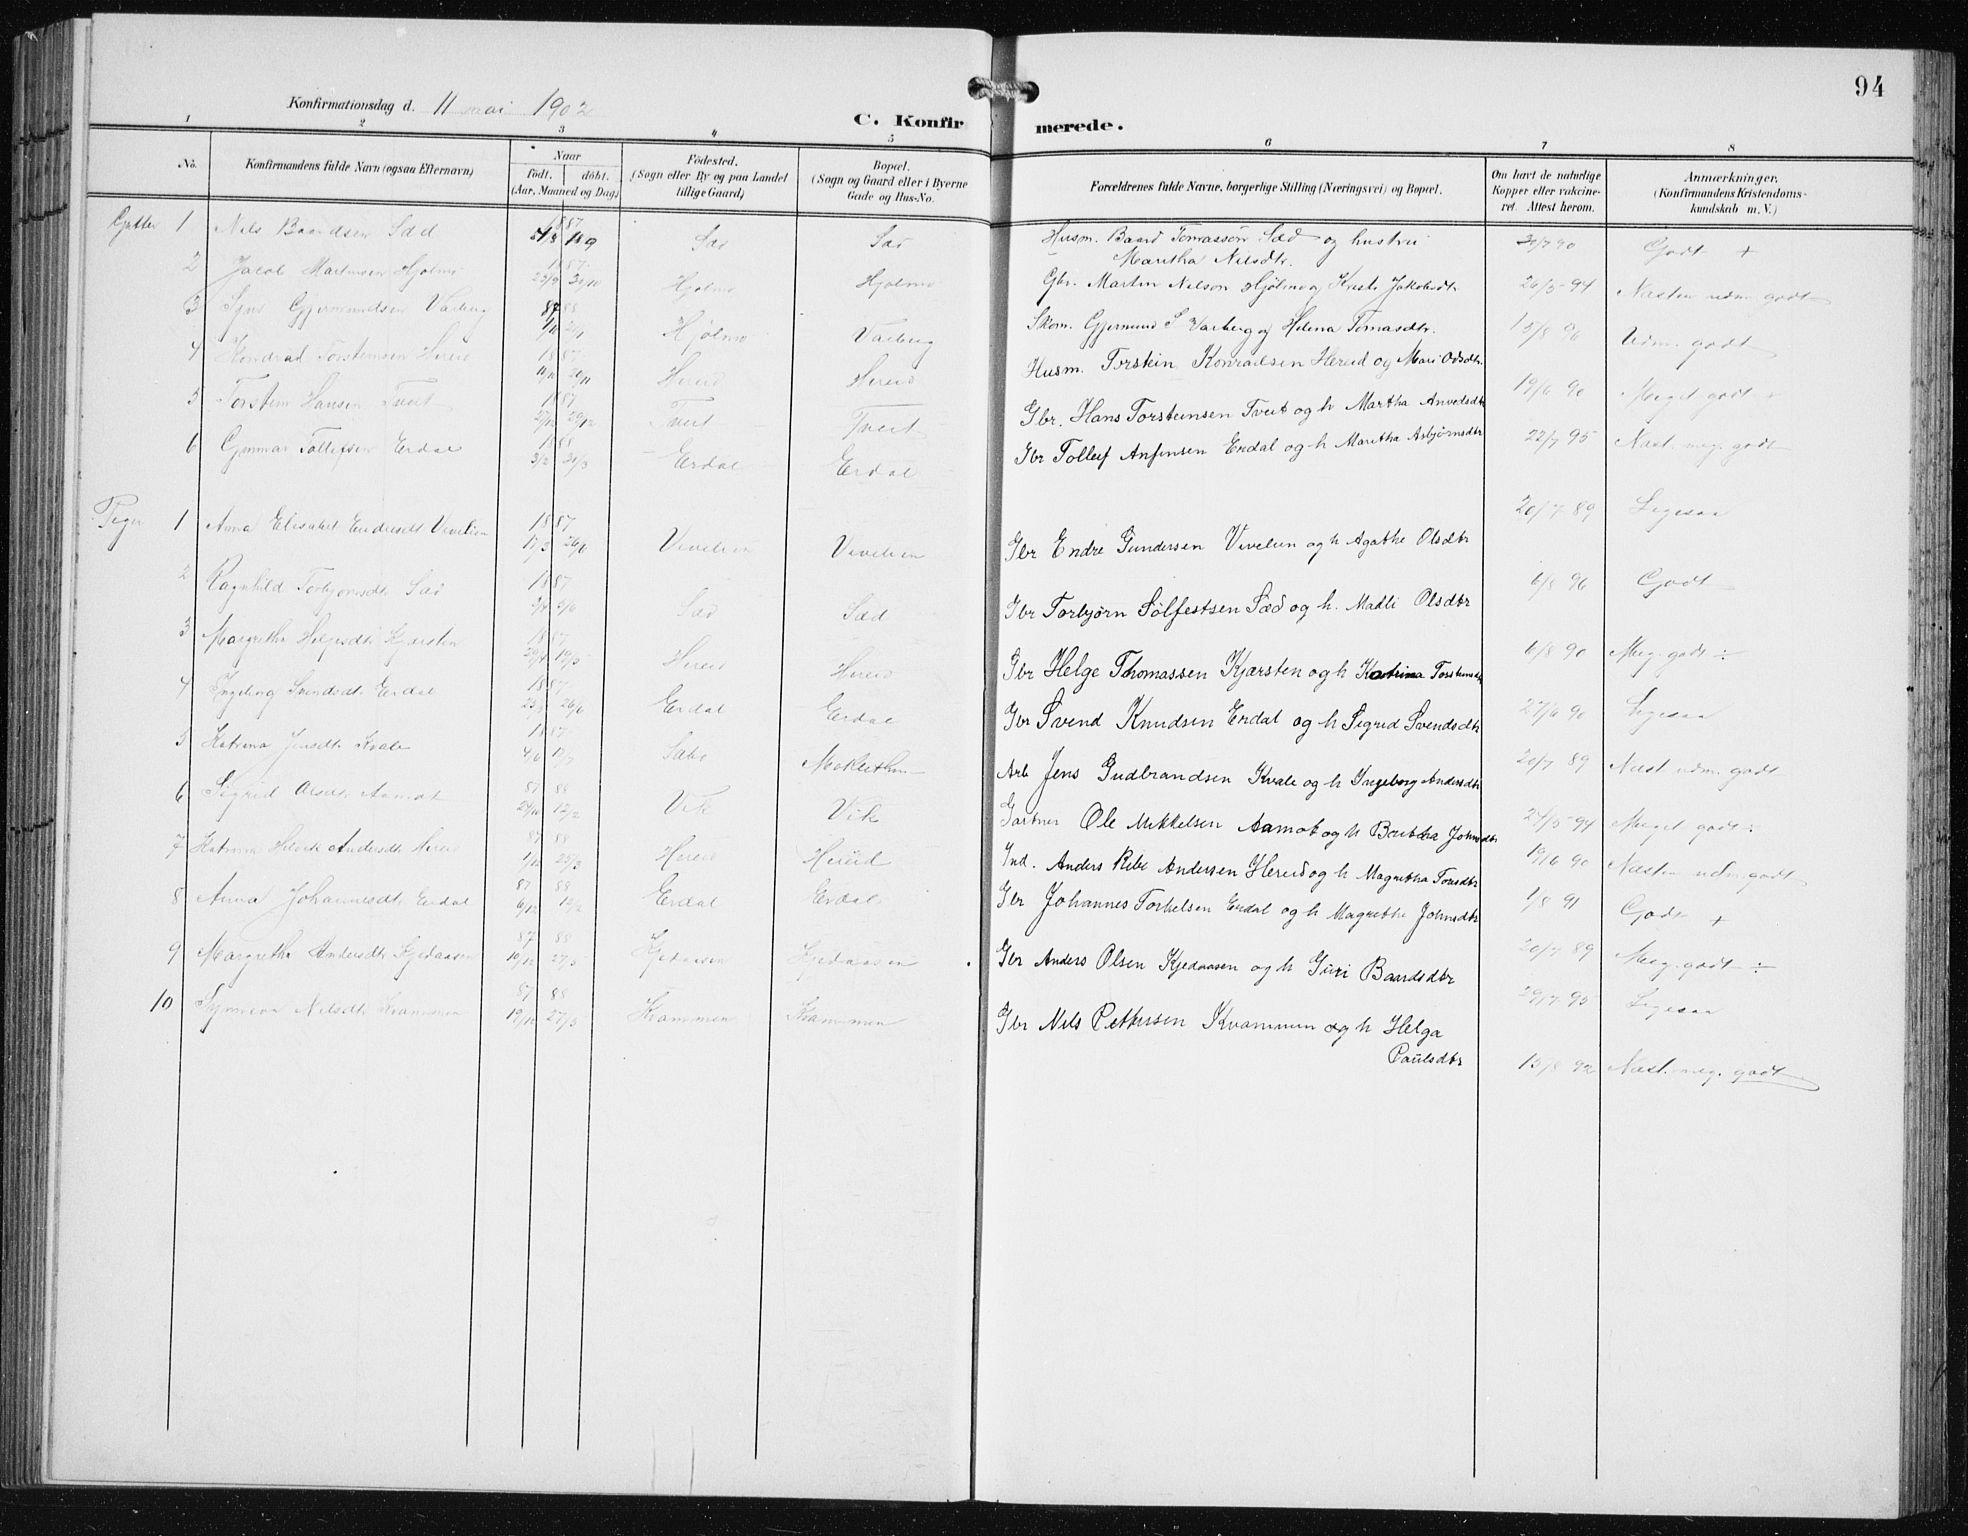 94
Konfirmationsdag d. 11 mai 1902
C. Konfirmerede.
1 2 3 4 5 6 7 8
No. Konfirmandens fulde Navn (ogsaa Efternavn) Naar født. døbt. (Aar, Maaned og Dag) Fødested. (Sogn eller By og paa Landet tillige Gaard) Bopæl. (Sogn og Gaard eller i Byerne Gade og Hus-No. Forældrenes fulde Navne, borgerlige Stilling (Næringsvei) og Bopæl. Om havt de naturlige Kopper eller vakcineret. Attest herom. Anmærkninger. (Konfirmandens Kristendomskundskab m. V.)
Gutter 1 Nils Baardsen Sæd 1887 Sæd Sæd Husm. Baard Tomassøn Sæd og hustru Maritha Nilsdtr. 90 Godt +
2 Jacob Martinsen Hjølmo 1887 25/9 30/10 Hjolmo Hjolmo Gbr. Martin Nilsen Hjölmo og Kristi Jakobsdtr 26/5 94 Næsten udm. godt
3 Gjermundsen Varberg 87 88 Hjolmo Varberg Skom. Gjermund S Varberg og Helena Tomasdtr. 15/8 96 Udm. godt
4 Kondrad Torsteinsen Hereid 1887 20/11 Hereid Hereid Husm. Torstein Konradsen Hereid og Mari Odsdtr. 19/6 90 Meget godt +
5 Torstein Hansen Tveit 1887 29/12 Tveit Tveit Gbr. Hans Torsteinsen Tveit og h Martha Anvedsdtr 22/7 95 Næst. meg. godt
6 Gunnar Tollefsen Erdal 1888 3/2 Erdal Erdal Gbr Tolleif Anfinsen Erdal og h Maritha Asbjørnsdtr 20/7 89 Ligesaa
Piger 1 Anna Elisabet Endresdt Vivelien 1887 17/3 26/6 Vivelien Vivelien Gbr Endre Gundersen Vivelien og h Agathe Olsdtr 6/8 96 Godt
2 Ragnhild Torbjornsdt Sæd 1887 Sæd Sæd Gbr Torbjørn Sølfestsen Sæd og h. Madli Olsdtr 6/8 90 Meg. godt ÷
3 Margretha Helgesdt Kjærsten 1887 29/4 19/5 Hereid Hereid Gbr Helge Thomassen Kjærsten og h Katrina Torsteinsdtr 27/6 90 Ligesaa
4 Ingeborg Svendsdt Erdal 1887 26/6 Erdal Erdal Gbr Svend Knudsen Erdal og h Sigrid Svendsdtr 20/7 89 Næst. udm. godt
5 Katrina Jensdt Kvale 1887 4/6 17/7 Sæbø Arb Jens Gudbrandsen Kvale og h Ingeborg Andersdtr 24/5 94 Meget godt ÷
6 Sigrid Olsdt Aamot 87 88 29/10 12/2 Vik Vik Gartner Ole Mikkelsen Aamot og h Johnsdtr 19/6 90 Næsten udm. godt
7 Katrina Andersdt Hereid 87 88 1/12 25/3 Hereid Hereid Ind. Anders Andersen Hereid og h Magretha 1/8 91 Godt +
8 Anna Johannesdt Erdal 87 88 6/12 12/2 Erdal Erdal Gbr Johannes Torkelsen Erdal og h Magrethe Johnsdtr 20/7 89 Meg. godt ÷
9 Margretha Andersdt Kjedaasen 87 88 10/12 27/5 Kjedaasen Kjedaasen Gbr Anders Olsen Kjedaasen og h Guri Baardsdtr 29/7 95 Ligesaa
10 Synneva Nilsdt Kvammen 87 88 19/12 27/5 Kvammen Kvammen Gbr Nils Pettersen Kvammen og h Helga Paulsdtr 15/8 92 Næst. meg. godt